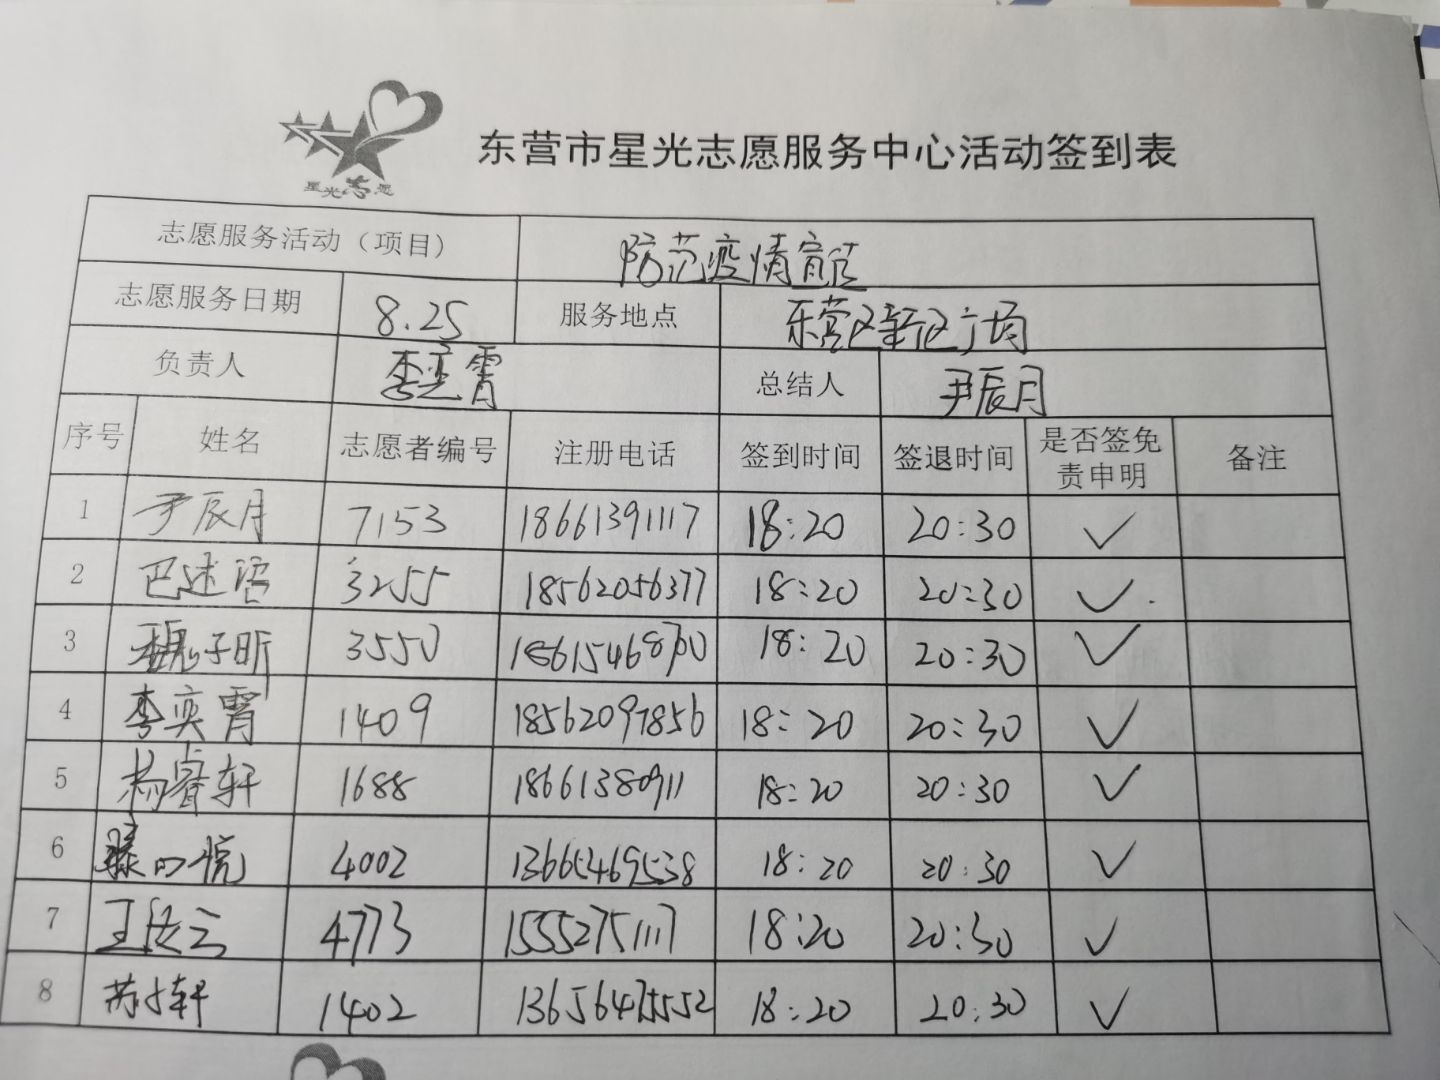 星光志愿
东营市星光志愿服务中心活动签到表
志愿服务活动（项目） 防范疫情宣传
志愿服务日期 8.25 服务地点 东营区新区广场
负责人 李奕霄 总结人 尹辰月
序号 姓名 志愿者编号 注册电话 签到时间 签退时间 是否签免责申明 备注
1 尹辰月 7153 18661391117 18:20 20:30 ✓
2 巴述语 3255 18562056377 18:20 20:30 ✓
3 魏子昕 3550 18:20 20:30 ✓
4 李奕霄 1409 18562097856 18:20 20:30 ✓
5 杨睿轩 1688 18661380911 18:20 20:30 ✓
6 4002 13665469538 18:20 20:30 ✓
7 4773 15552751117 18:20 20:30 ✓
8 1402 13656475552 18:20 20:30 ✓